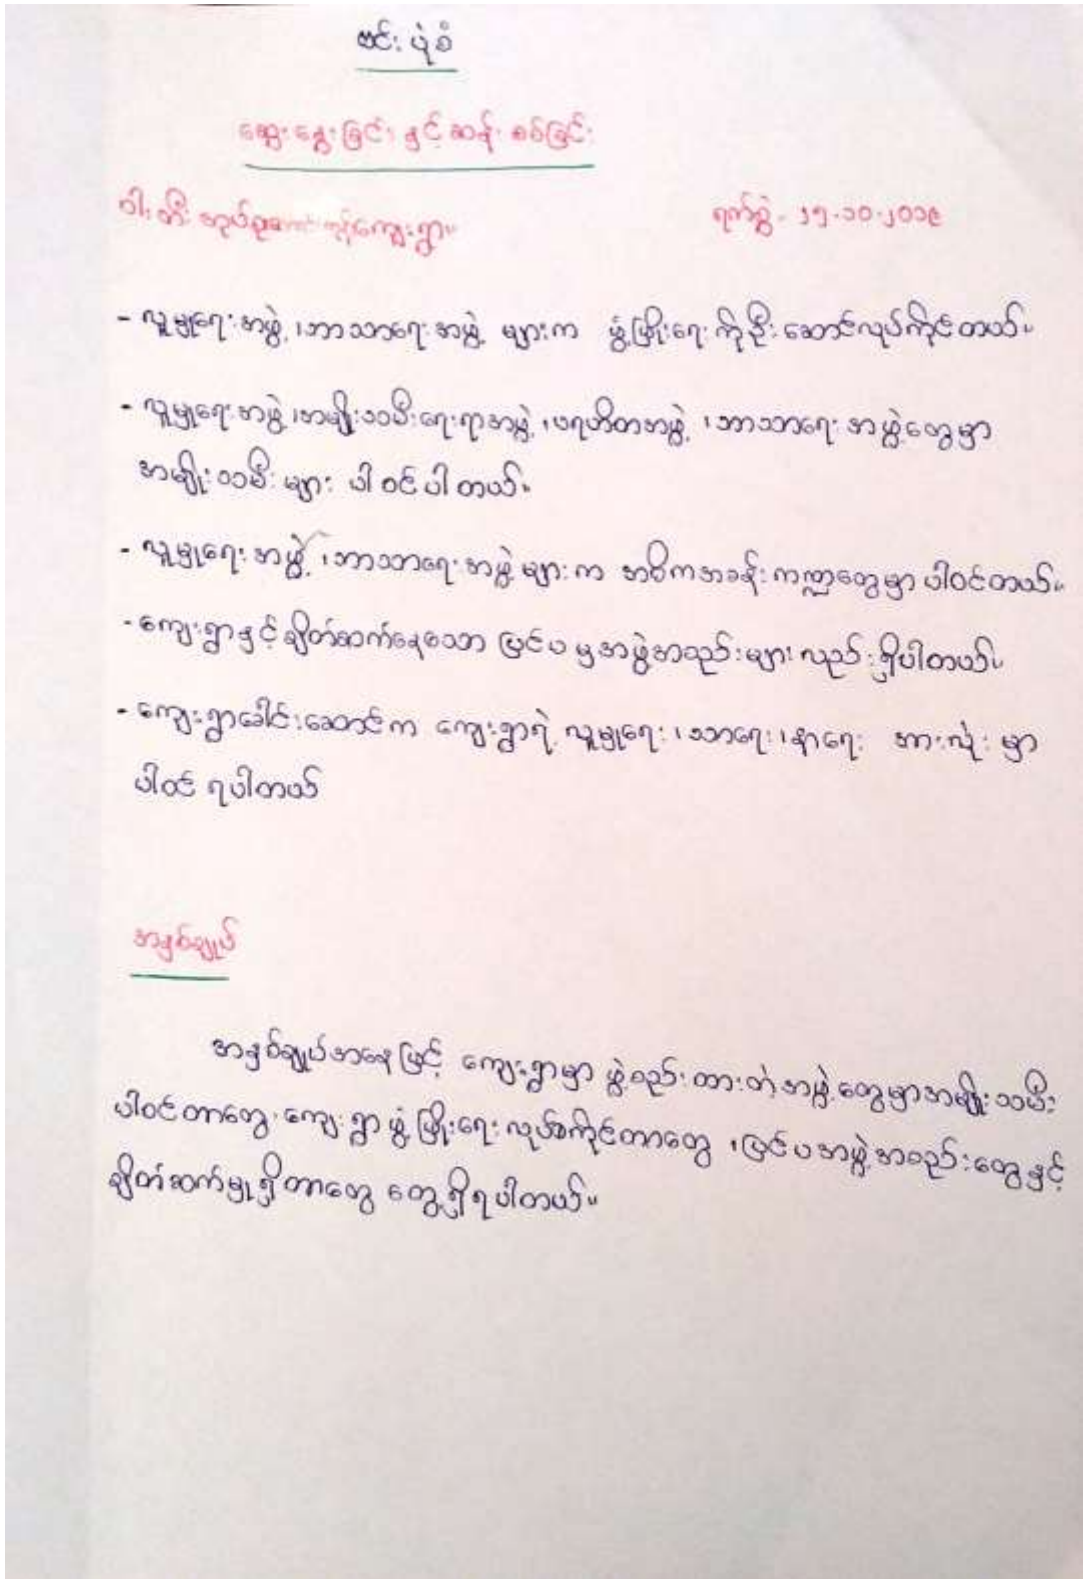 ဗင်းပုံစံ
ဆွေးနွေးခြင်း နှင့် ဆန်းစစ်ခြင်း
ဝါးတီး အုပ်စု ကျေးရွာ။ ရက်စွဲ - ၂၅-၁၀-၂၀၁၉
- လူမှုရေးအဖွဲ့၊ ဘာသာရေးအဖွဲ့ များက ဖွံ့ဖြိုးရေးကို ဦးဆောင်လုပ်ကိုင်တယ်။
- လူမှုရေးအဖွဲ့၊ အမျိုးသမီးရေးရာအဖွဲ့၊ ပရဟိတအဖွဲ့၊ ဘာသာရေး အဖွဲ့တွေမှာ
အမျိုးသမီးများ ပါဝင်ပါတယ်။
- လူမှုရေးအဖွဲ့၊ ဘာသာရေးအဖွဲ့များက အဓိကအခန်းကဏ္ဍတွေမှာ ပါဝင်တယ်။
- ကျေးရွာနှင့် ချိတ်ဆက်နေသော ပြင်ပမှအဖွဲ့အစည်းများလည်း ရှိပါတယ်။
- ကျေးရွာခေါင်းဆောင်က ကျေးရွာရဲ့ လူမှုရေး၊ သာရေး၊ နာရေး အားလုံးမှာ
ပါဝင်ရပါတယ်
အနှစ်ချုပ်
အနှစ်ချုပ်အနေဖြင့် ကျေးရွာမှာ ဖွဲ့စည်းထားတဲ့အဖွဲ့တွေမှာအမျိုးသမီး
ပါဝင်တာတွေ ကျေးရွာဖွံ့ဖြိုးရေးလုပ်ကိုင်တာတွေ ၊ပြင်ပအဖွဲ့အစည်းတွေနှင့်
ချိတ်ဆက်မှုရှိတာတွေ တွေ့ရှိရပါတယ်။